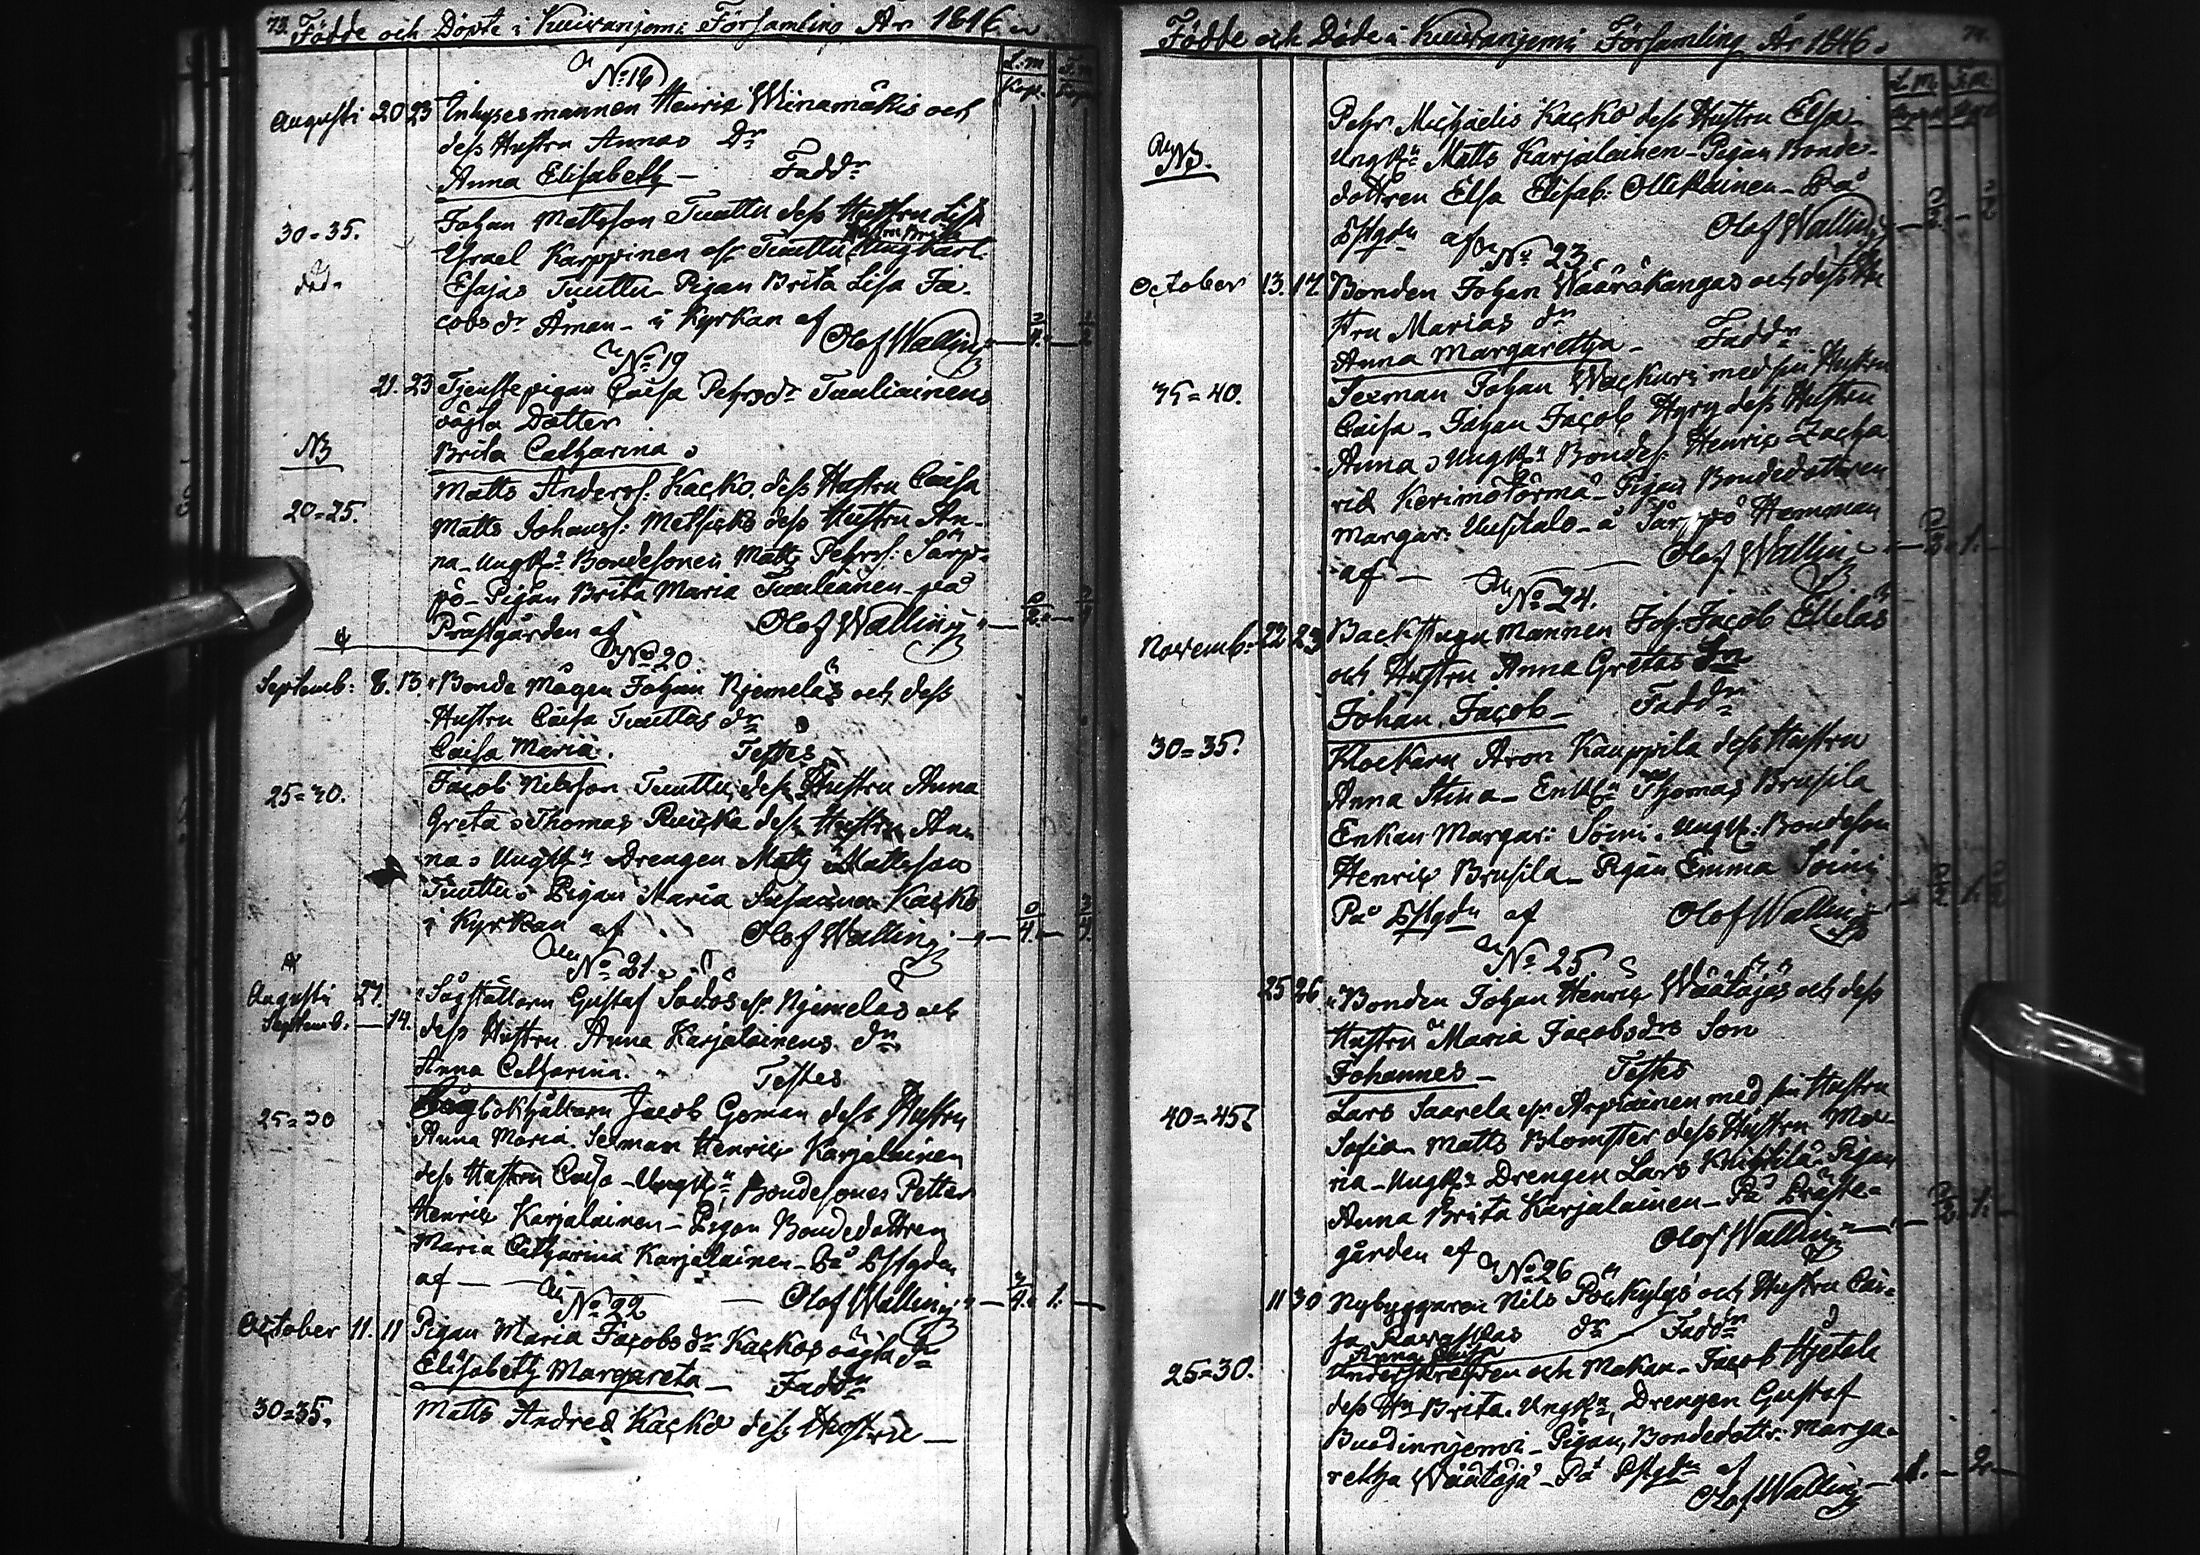 73. Födde och Döpte i Kuivaniemi Församling År 1816.
L.m. S.m.
Kop. Kop.
No 18
Augusti 20 23 Inhysesmannen Henric Wiinamäkis och
dess Hustru Annas Dr
Anna Elisabeth — Faddr
30=35. Johan Mattsson Tuuttu dess Hustru Lisa
Hustru Brita
Esrael Karppinen Tuuttu Ungkarl.
död. Esajas Tuuttu — Pigan Brita Lisa Ja-
cobs dr Åman — i Kyrkan af
Olof Walling
No 19
21. 23 Tjenstepigan Caisa Pehrsdr Tuuliainens
oägta Dotter
NB Brita Catharina
20=25. Matts Anderss: Kacko. dess Hustru Caisa
Matts Johanss: dess Hustru An-
na — Ungk: Bondesonen Matts Pehrss: Särp-
pö — Pigan Brita Maria Tuuliainen — på
Prästgården af Olof Walling
No 20
Septemb: 8. 13. Bonde Mågen Johan Njemeläs och dess
Hustru Caisa Tuuttus dr
Caisa Maria. Testes
25=30. Jacob Nilsson Tuuttu, dess Hustru Anna
Greta Thomas dess Hustru An-
na Ungk: Drengen Matts Mattsson
Tuuttu Pigan Maria Susanna Kacko
i Kyrkan af Olof Walling
No 21.
Augusti 27. Sågställarn Gustaf Njemelas och
Septemb. — 14. dess Hustru Anna Karjalainens dr
Anna Catharina. Testes
25=30 Jacob Goman dess Hustru
Anna Maria. Sexman Henric Karjalainen
dess Hustru Caisa — Ungk: Bondesonen Petter
Henric Karjalainen — Pigan Bondedottren
Maria Catharina Karjalainen — På Pstgdn
af — — Olof Walling
No 22
October 11. 11 Pigan Maria Jacobs dr Kackos oägta dr
Elisabeth Margareta — Faddr
30=35. Matts Andred Kacko dess Hustru —
Födde och Döde i Kuivaniemi Församling År 1816. 74.
L.m. S.m.
Pehr Michaelis Kacko dess Hustru Elsa
NB. Ungk: Matts Karjalainen — Pigan Bonde-
dottren Elsa Elisab: Ollikainen — På
Pstgdn af Olof Walling
No 23.
October 13. 17. Bonden Johan Wääräkangas och dess Hu
stru Marias dr
Anna Margaretha — Faddr
35=40. Sexman Johan Wackuri med sin Hustru
Caisa — Johan Jacob Hyry dess Hustru
Anna Ungk: Bondes: Henric Zacha
rid Kerimö Törmä — Pigan Bondedottren
Margar: Uusitalo — å Särppö Hemman
af — — Olof Walling
No 24.
Novemb: 22 23 Backstugu Mannen Joh. Jacob Ellilas
och Hustru Anna Gretas Sn
Johan Jacob — Faddr
30=35. Klockarn Aron Kauppila dess Hustru
Anna Stina — Enkl: Thomas Brusila
Enkan Margar: Soini. Ungk: Bondeson
Henric Brusila — Pigan Emma Soini
På Pstgdn af Olof Walling
No 25
25 26 Bonden Johan Henric Wäätäjäs och dess
Hustru Maria Jacobsdrs Son
Johannes — Testes
40=45. Lars Saarela Arpiainen med sin Hustru
Sofia — Matts Blomster dess Hustru Ma-
ria — Ungk: Drengen Lars Pigan
Anna Brita Karjalainen — På Präste-
gården af Olof Walling
No 26
11 30 Nybyggaren Nils Pockylgs och Hustru Cai-
sa dr Faddr
Anna Caisa
25=30. Underskrefven och Makan — Jacob Hjetala
dess Hu Brita. Ungk: Drengen Gustaf
Buodinnjemi — Pigan, Bondedottr: Marga-
retha Wäätäjä — På Pstgdn af
Olof Walling